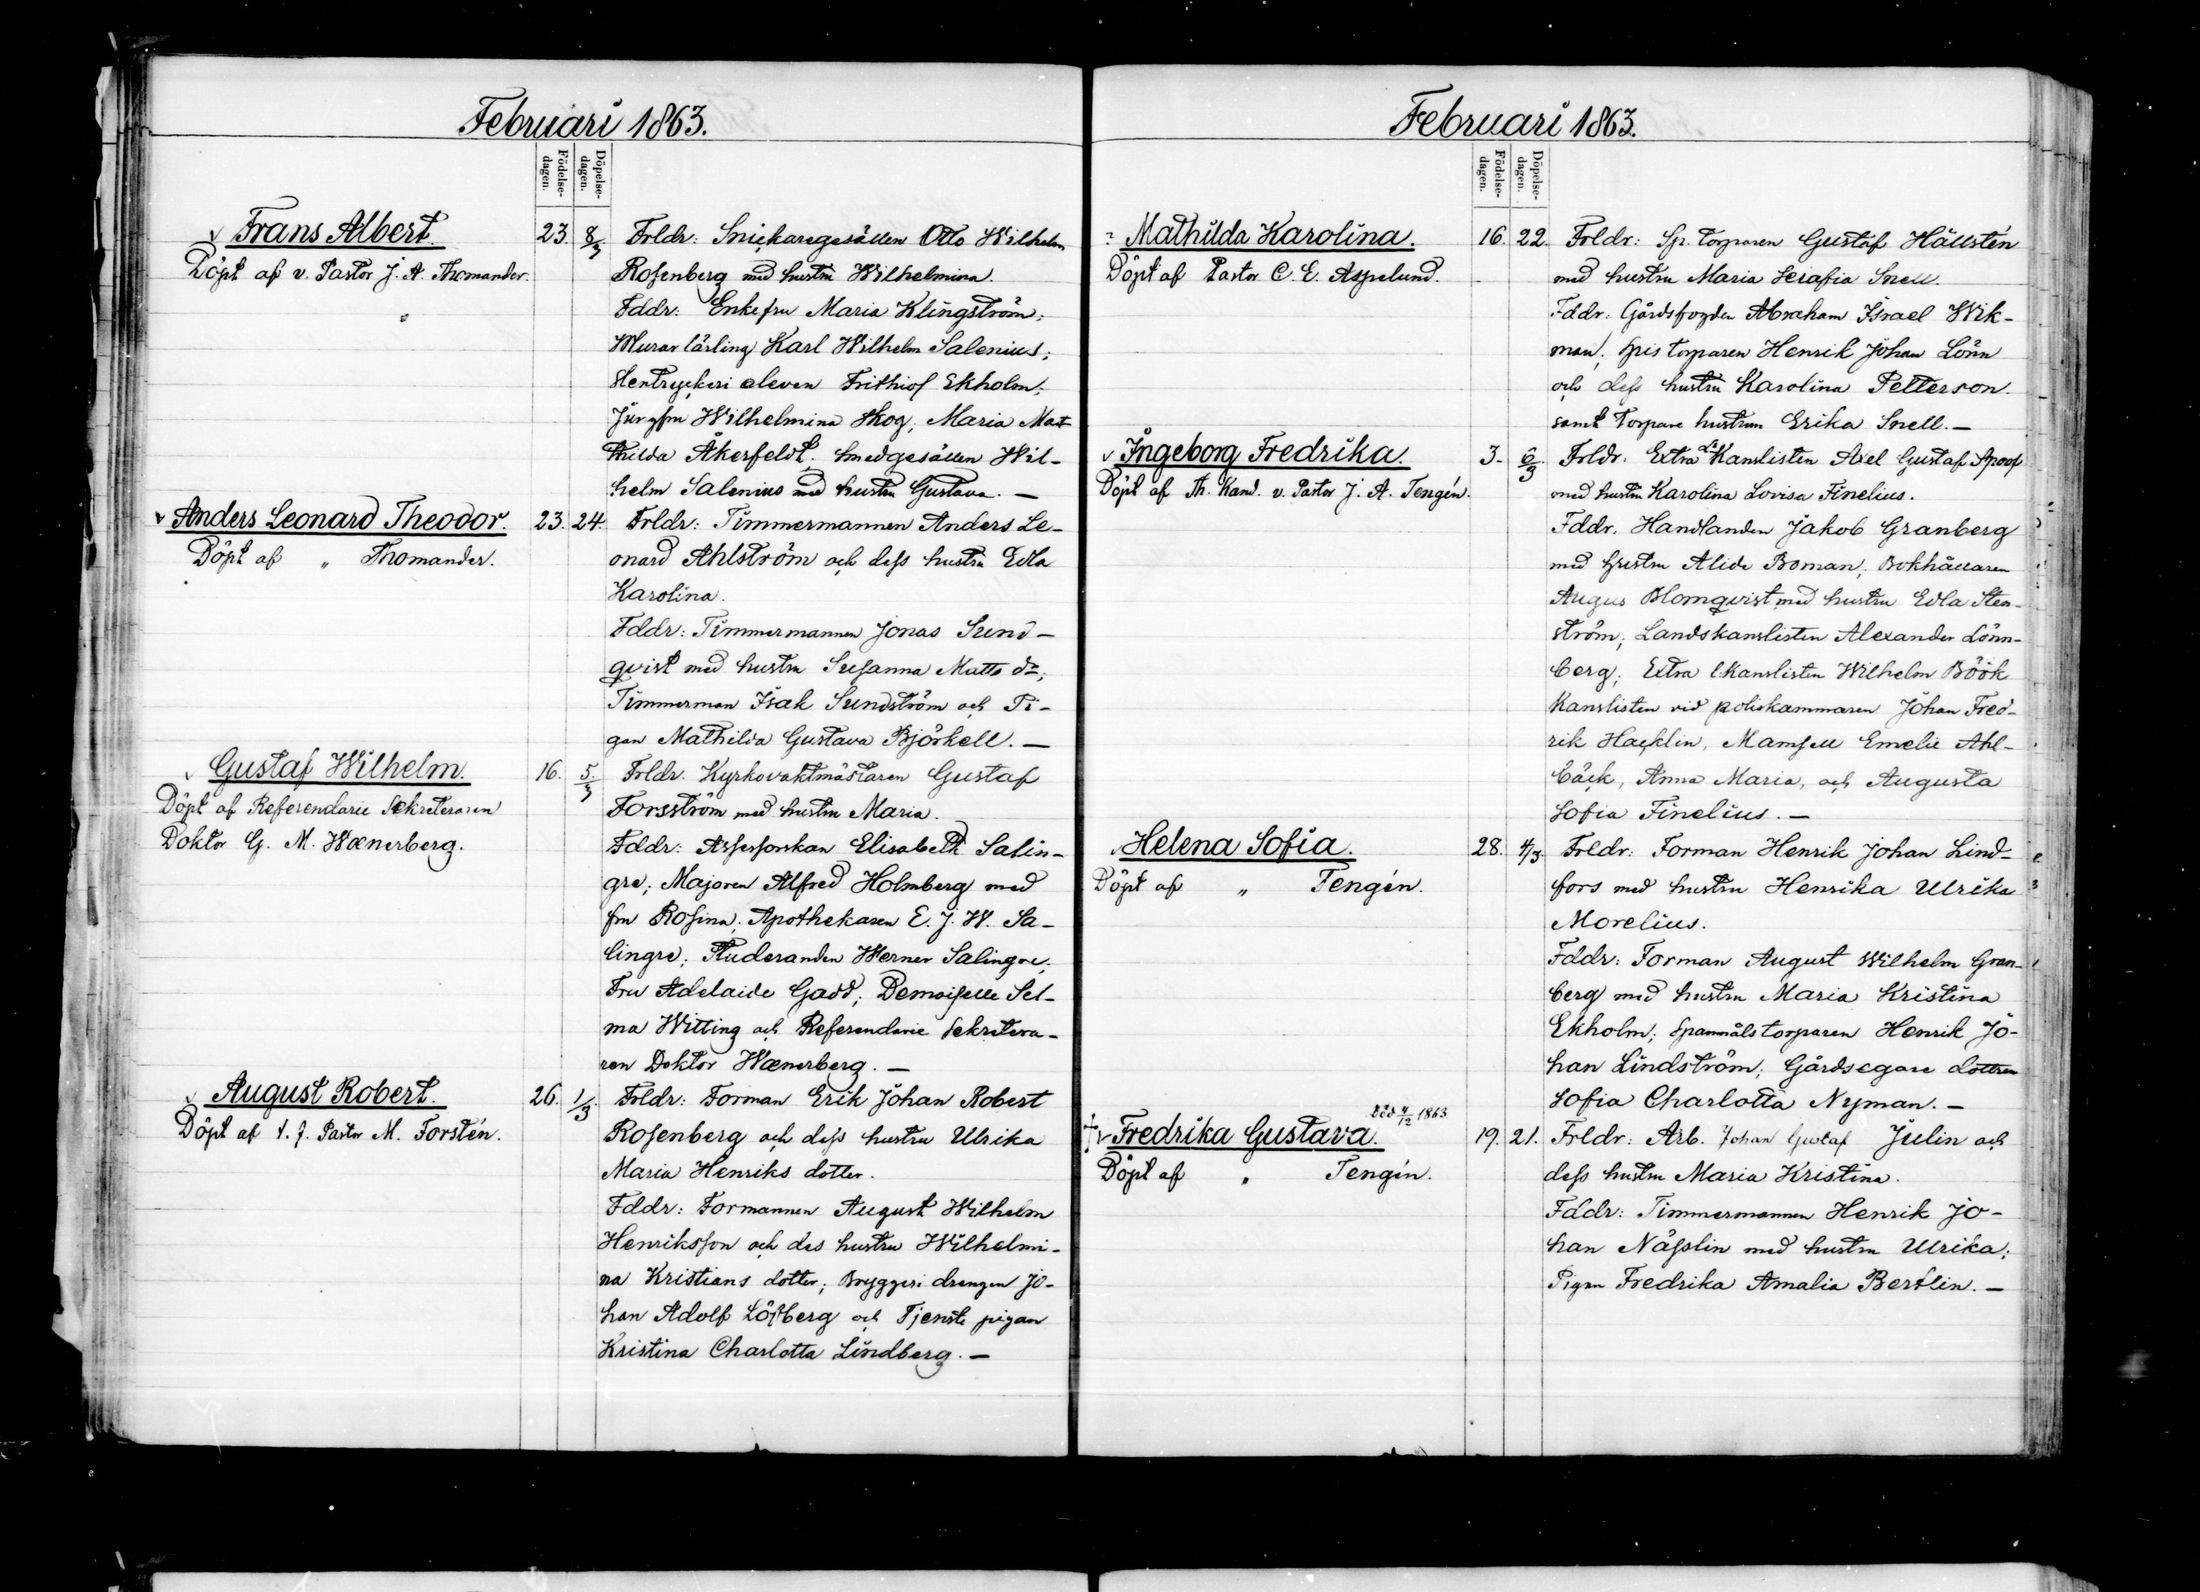 Februari 1863.
Födelse-dagen. Döpelse-dagen.
Frans Albert. 23. 8/3 Frldr: Snickaregesällen Otto Wilhelm
Döpt af v. Pastor J. A. Thomander. Rosenberg med hustru Wilhelmina.
Fddr: Enkefru Maria Klingström;
Murar lärling Karl Wilhelm Salenius;
Stentryckeri eleven Frithiof Ekholm;
Jungfru Wilhelmina Skog, Maria Mat-
thilda Åkerfeldt. Smedgesällen Wil-
helm Salenius med hustru Gustava. —
Anders Leonard Theodor. 23. 24. Frldr: Timmermannen Anders Le-
Döpt af " Thomander. onard Ahlström och dess hustru Edla
Karolina.
Fddr: Timmermannen Jonas Sund-
qvist med hustru Susanna Matts dr;
Timmerman Isak Sundström och Pi-
gan Mathilda Gustava Björkell. —
Gustaf Wilhelm. 16. 5/3 Frldr. Kyrkovaktmästaren Gustaf
Döpt af Referendarie Sekreteraren Forsström med hustru Maria.
Doktor G. M. Wænerberg. Fddr: Assessorskan Elisabeth Salin-
gre; Majoren Alfred Holmberg med
fru Rosina; Apothekaren E. J. W. Sa-
lingre; Studeranden Werner Salingre;
Fru Adelaide Gadd; Demoiselle Sel-
ma Witting och Referendarie Sekretera-
ren Doktor Wænerberg. —
August Robert. 26. 1/3. Frldr: Forman Erik Johan Robert
Döpt af t. f. Pastor M. Forstén. Rosenberg och dess hustru Ulrika
Maria Henriks dotter.
Fddr: Formannen August Wilhelm
Henriksson och des hustru Wilhelmi-
na Kristians dotter; Bryggeri drengen Jo-
han Adolf Löfberg och Tjenste pigan
Kristina Charlotta Lindberg. —
Februari 1863.
Födelse-dagen. Döpelse-dagen.
Mathilda Karolina. 16 22. Frldr: Sp. torparen Gustaf Hällstén
Döpt af Pastor C. E. Aspelund. med hustru Maria Serafia Snell.
Fddr: Gårdsfogden Abraham Israel Wik-
man; Spis torparen Henrik Johan Lönn
och dess hustru Karolina Petterson.
samt Torpare hustrun Erika Snell. —
Ingeborg Fredrika. 3. 6/3 Frldr: Extra Kanslisten Axel Gustaf Spoof
Döpt af Th. Kand. v. Pastor J. A. Tengén. med hustru Karolina Lovisa Finelius.
Fddr. Handlanden Jakob Granberg
med hustru Alida Boman; Bokhållaren
Augus Blomqvist med hustru Edla Sten-
ström; Landskanslisten Alexander Lönn-
berg; Extra Kanslisten Wilhelm Böök
Kanslisten vid poliskammaren Johan Fred-
rik Hacklin, Mamsell Emelie Ahl-
bäck, Anna Maria, och Augusta
Sofia Finelius. —
Helena Sofia. 28. 4/3. Frldr: Forman Henrik Johan Lind-
Döpt af " Tengén. fors med hustru Henrika Ulrika
Morelius.
Fddr: Forman August Wilhelm Gran-
berg med hustru Maria Kristina
Ekholm; Spanmåls torparen Henrik Jo-
han Lindström; Gårdsegare dottren
Sofia Charlotta Nyman. —
död 4/12 1863
Fredrika Gustava. 19. 21. Frldr: Arb. Johan Gustaf Julin och
Döpt af " Tengén. dess hustru Maria Kristina.
Fddr: Timmermannen Henrik Jo-
han Nässlin med hustru Ulrika;
Pigan Fredrika Amalia Bertlin. —